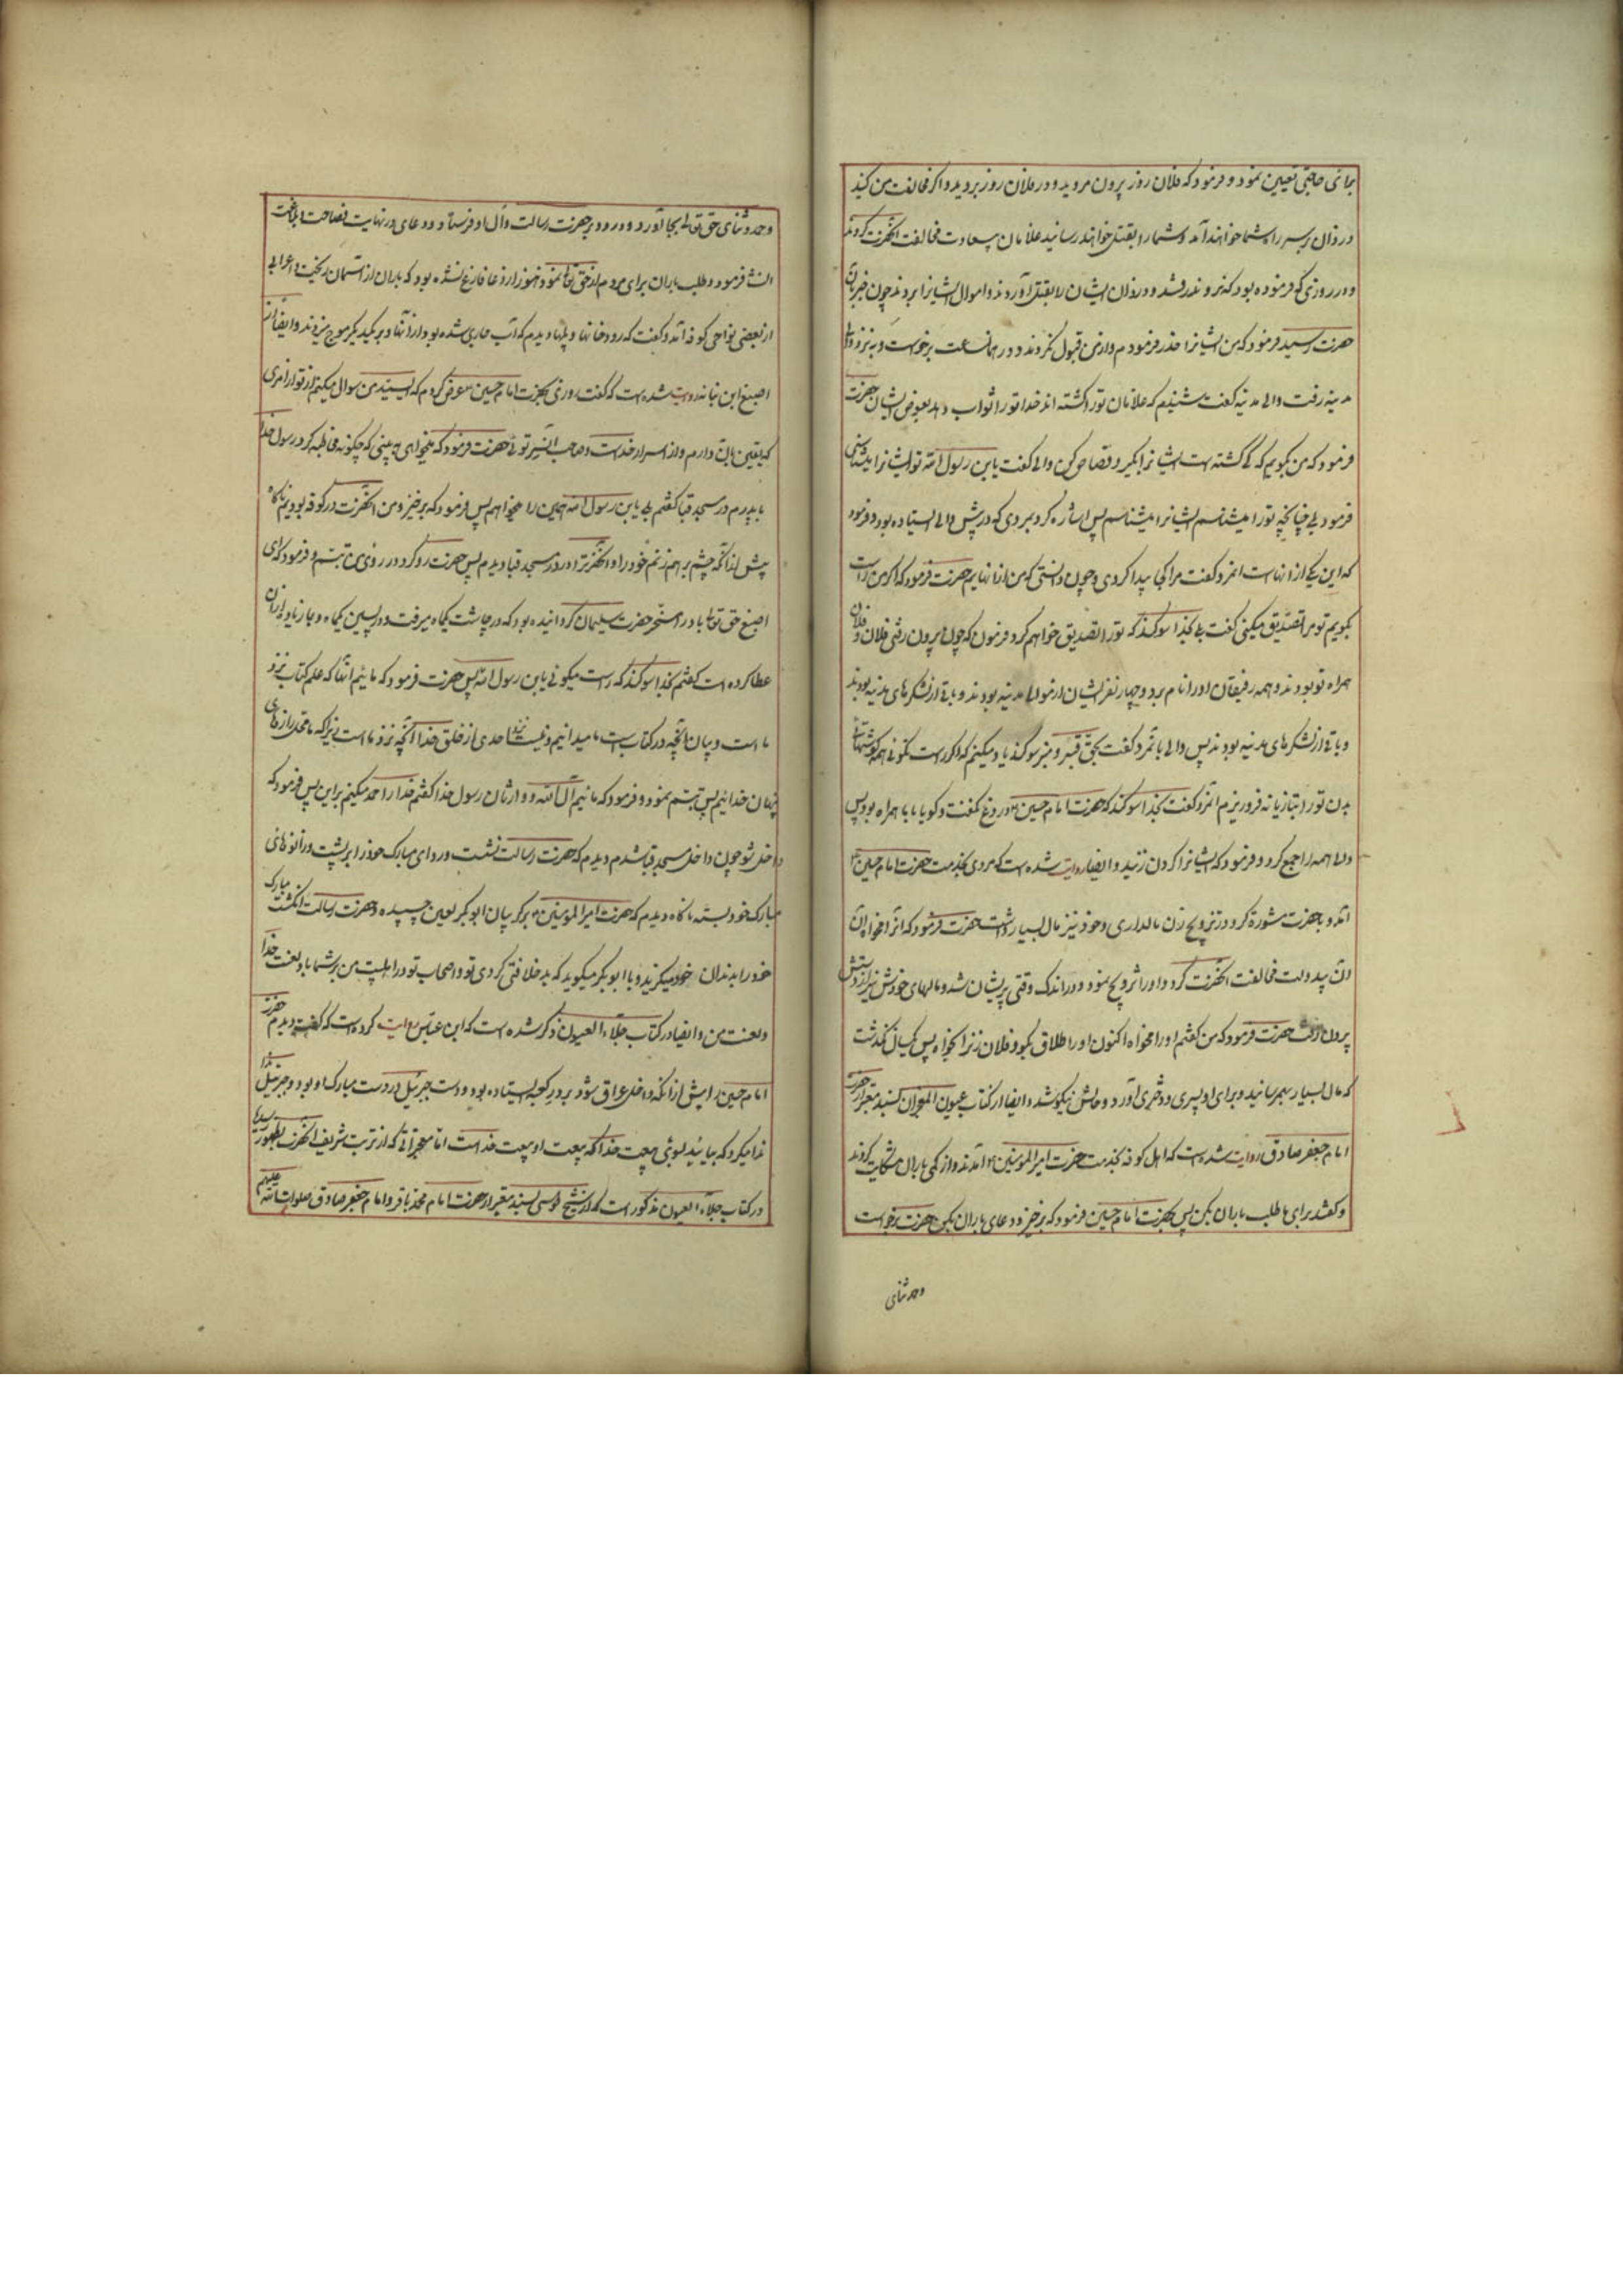 بجائی حاجتی تعیین نمود و فرمود که فلان روز بیرون مروید و در فلان روز بروید و اگر مخالفت من کنید
دزدان بر سر راه شما خواهند آمد و شما را بقتل خواهند رسانید غلامان سعادت مخالفت آنحضرت کردند
و در روزی که فرموده بود که نروند رفتند و دزدان ایشان را بقتل آوردند و اموال ایشانرا بردند چون خبر بآن
حضرت رسید فرمود که من ایشانرا حذر فرمودم و از من قبول نکردند و در همان ساعت برخواست و به نزد والی
مدینه رفت والی مدینه گفت شنیدم که غلامان تو را کشته اند خدا تو را ثواب دهد بعوض ایشان حضرت
فرمود که من بگویم که کی کشته است ایشانرا بگیر و قصاص کن والی گفت یابن رسول الله تو ایشانرا میشناسی
فرمود بلی چنانچه تو را میشناسم ایشانرا میشناسم پس اشاره کرد بمردی که در پیش والی ایستاده بود و فرمود
که این یکی از آنهاست آنمرد گفت مرا کجا پیدا کردی و چون دانستی که من از آنهایم حضرت فرمود که اگر من راست
بگویم تو مرا تصدیق میکنی گفت بلی بخدا سوگند که تو را تصدیق خواهم کرد فرمود که چون بیرون رفتی فلان و فلان
همراه تو بودند و همه رفیقان او را نام برد و چهار نفر ایشان از موالی مدینه بودند و باقی از لشکرهای مدینه بودند
و باقی از لشکرهای مدینه بودند پس والی با آنمرد گفت بحق قبر و منبر سوگند یاد میکنم که اگر راست نگوئی همه گوشتهای
بدن تو را بتازیانه فرو ریزم آنمرد گفت بخدا سوگند که حضرت امام حسین دروغ نگفت و گویا با ما همراه بود پس
والی همه را جمع کرد و فرمود که ایشانرا گردن زنید و ایضا روایت شده است که مردی بخدمت حضرت امام حسین
آمد و بحضرت مشورة کرد در تزویج زن مالداری و خود نیز مال بسیار داشت حضرت فرمود که آنرا مخواه آن
آن بیدولت مخالفت آنحضرت کرد و او را تزویج نمود و در اندک وقتی پریشان شد و مالهای خودش نیز از دستش
بیرون رفت حضرت فرمود که من گفتم او را مخواه اکنون او را طلاق بگو و فلان زنرا بخواه پس یکسال نگذشت
که مال بسیار بهم رسانید و برای او پسری و دختری آورد و حالش نیکو شد و ایضا از کتاب عیون المعجزات بسند معتبر از حضرت
امام جعفر صادق روایت شده است که اهل کوفه بخدمت حضرت امیر المومنین آمدند و از کمی باران شکایت کردند
و گفتند برای ما طلب باران بکن پس بحضرت امام حسین فرمود که برخیز و دعای باران بکن حضرت برخواست
و حمد و ثنای
و حمد و ثنای حق تعالی بجا آورد و درود بر حضرت رسالت و آل او فرستاد و دعای در نهایت فصاحت و بلاغت
انشا فرمود و طلب باران برای مردم از حق تعالی نمود و هنوز از دعا فارغ نشده بود که باران از آسمان ریخت و اعرابی
از بعضی نواحی کوفه آمد و گفت که رودخانها و پلها دیدم که آب جاری شده بود از آنها و بر یکدیگر موج میزدند و ایضا از
اصبغ ابن نباته روایت شده است که گفت روزی بحضرت امام حسین عرض کردم که ای سید من سوال میکنم از تو از امری
که یقین بآن دارم و از اسرار خداست و صاحب آنسر توئی حضرت فرمود که میخواهی به بینی که چگونه مخاطبه کرد رسول خدا
با پدرم در مسجد قبا گفتم بلی یابن رسول الله همین را میخواهم پس فرمود که برخیز و من و آنحضرت در کوفه بودیم ناگاه
پیش از آنکه چشم بر هم زنم خود را و آنحضرت را در مسجد قبا دیدم پس حضرت رو کرد در روی من تبسم و فرمود که ای
اصبغ حق تعالی باد را مسخر حضرت سلیمان گردانیده بود که در چاشت یکماه میرفت و در پسین یکماه و بما زیاده از آن
عطا کرده است گفتم بخدا سوگند که راست میگوئی یابن رسول الله پس حضرت فرمود که مائیم آنها که علم کتاب نزد
ماست و بیان آنچه در کتابست ما میدانیم و نیست نزد احدی از خلق خدا آنچه نزد ماست زیرا که ما محل رازهای
پنهان خدائیم پس تبسم نمود و فرمود که مائیم آل الله و وارثان رسول خدا گفتم خدا را حمد میکنم بر این پس فرمود که
داخل شو چون داخل مسجد قبا شدم دیدم که حضرت رسالت نشست و ردای مبارک خود را بر پشت و زانوهای
مبارک خود بسته ناگاه دیدم که حضرت امیر المومنین بر گریبان ابوبکر لعین چسپیده و حضرت رسالت انگشت مبارک
خود را بدندان خود میگزید و با ابوبکر میگوید که بد خلافتی کردی تو و اصحاب تو در اهلبیت من بر شما باد لعنت خدا
و لعنت من و ایضا در کتاب جلاء العیون ذکر شده است که ابن عباس روایت کرده است که گفت دیدم حضرت
امام حسین را پیش از آنکه داخل عراق شود بر در کعبه ایستاده بود و دست جبرئیل در دست مبارک او بود و جبرئیل
ندا میکرد که بیائید بسوی بیعت خدا که بیعت او بیعت خداست اما معجزاتی که از تربت شریف آنحضرت بظهور رسید
در کتاب جلاء العیون مذکور است که از شیخ طوسی بسند معتبر از حضرت امام محمد باقر و امام جعفر صادق صلوات الله علیهم